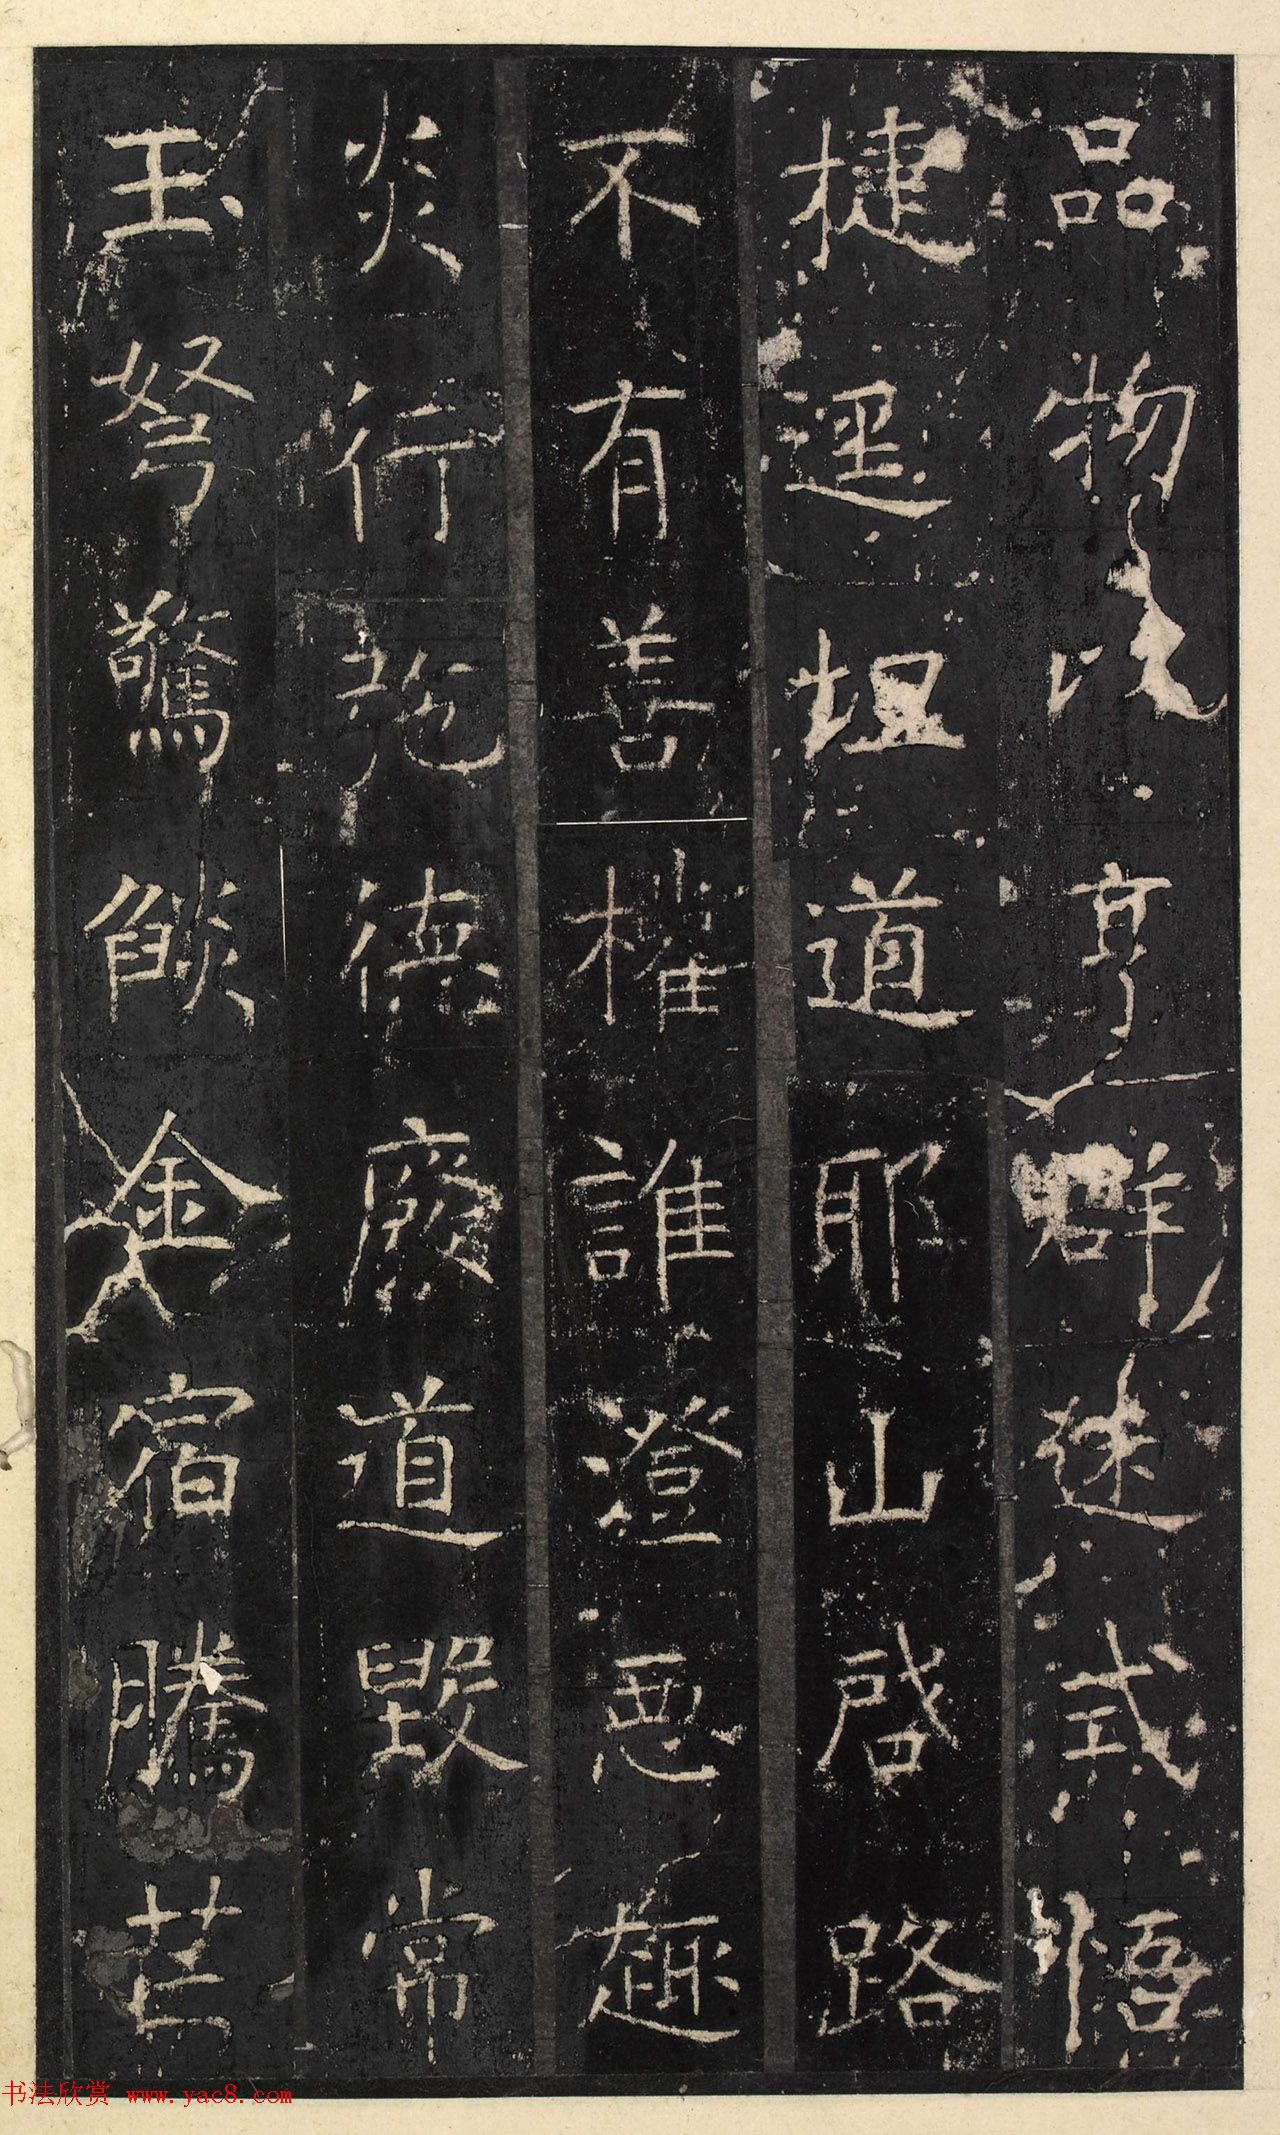 品物以亨群迷式悟
捷遥坦道耶山啓路
不有善權誰澄惡趣
炎行茺德廢道毀常
玉弩驚燄金宿騰芒
书法欣赏 www.yac8.com